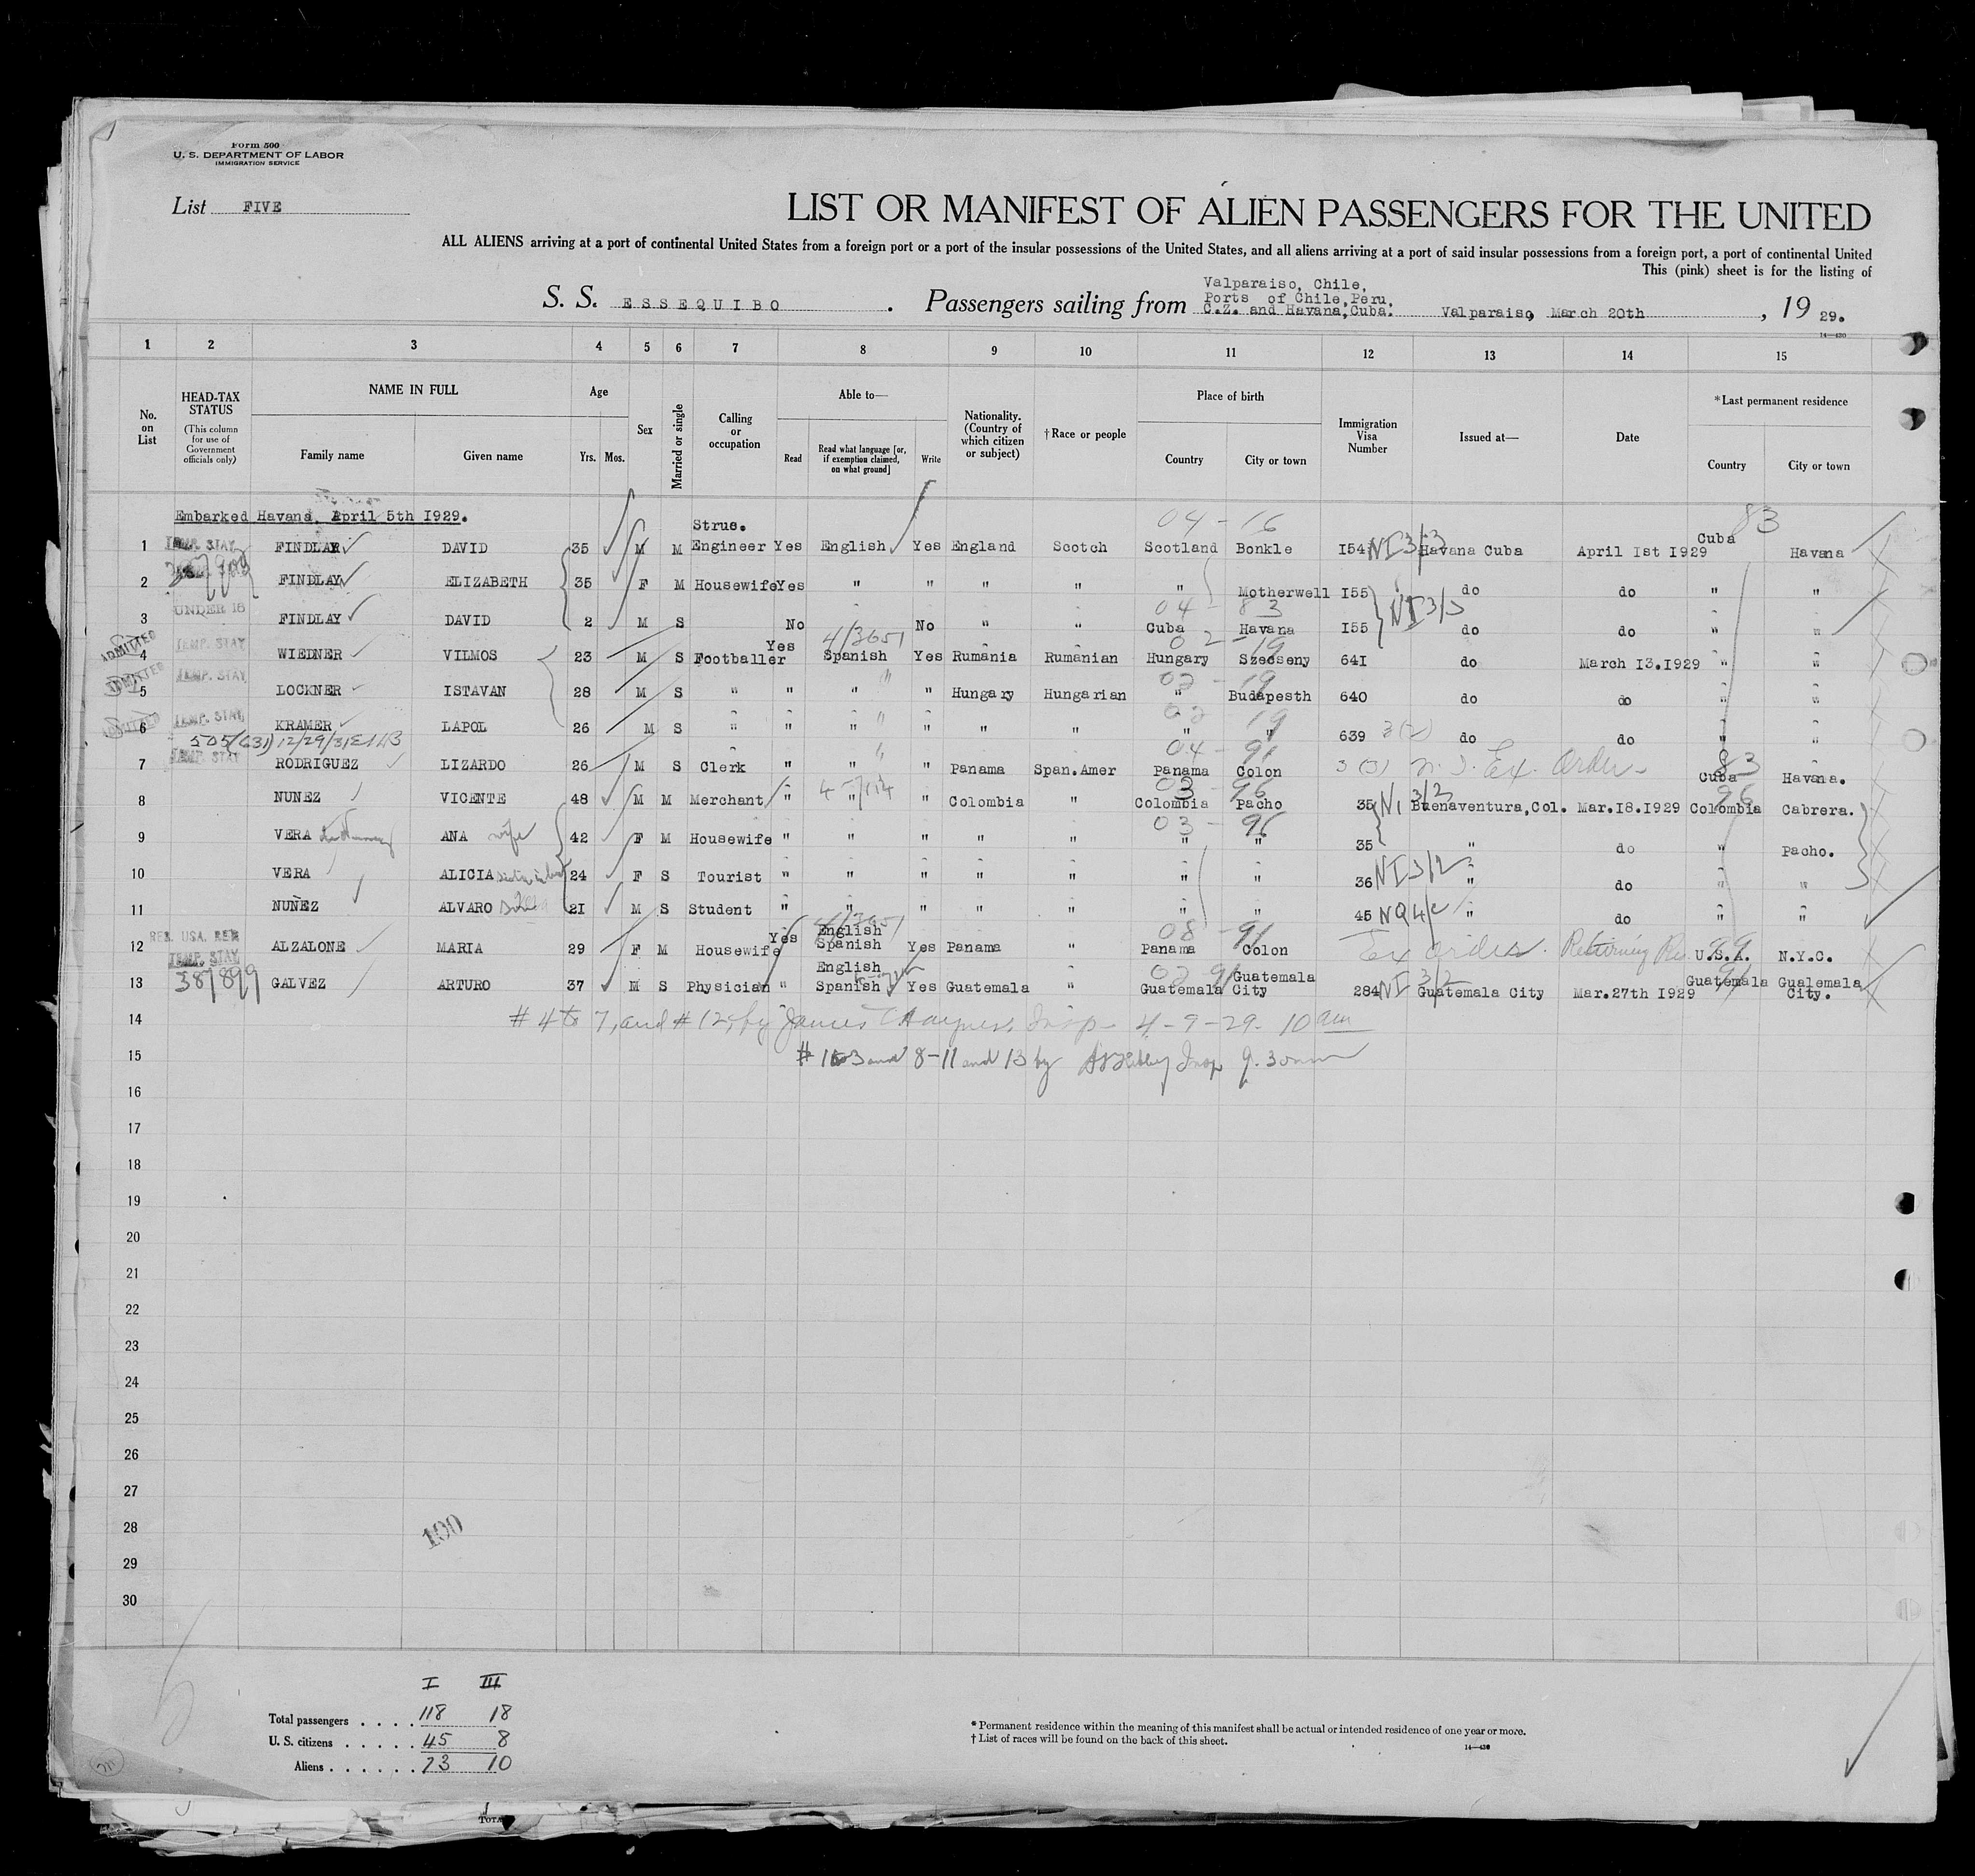 Form 500
U. S. DEPARTMENT OF LABOR
IMMIGRATION SERVICE
List FIVE
LIST OR MANIFEST OF ALIEN PASSENGERS FOR THE UNITED
ALL ALIENS arriving at a port of continental United States from a foreign port or a port of the insular possessions of the United States, and all aliens arriving at a port of said insular possessions from a foreign port, a port of continental United
This (pink) sheet is for the listing of
Valparaiso, Chile,
Ports of Chile, Peru,
S. S. ESSEQUIBO . Passengers sailing from C.Z. and Havana,Cuba. Valparaiso, March 20th , 19 29.
14—430
1 2 3 4 5 6 7 8 9 10 11 12 13 14 15
No. on List
HEAD-TAX STATUS
(This column for use of Government officials only)
NAME IN FULL
Family name Given name
Age
Yrs. Mos.
Sex
Married or single
Calling or occupation
Able to—
Read Read what language [or, if exemption claimed, on what ground] Write
Nationality. (Country of which citizen or subject)
†Race or people
Place of birth
Country City or town
Immigration Visa Number
Issued at—
Date
*Last permanent residence
Country City or town
Embarked Havana, April 5th 1929.
04 - 16 83
1 TEMP. STAY FINDLAY DAVID 35 M M Struc. Engineer Yes English Yes England Scotch Scotland Bonkle I54 NI 3/3 Havana Cuba April Ist I929 Cuba Havana
2 FINDLAY ELIZABETH 35 F M Housewife Yes " " " " " Motherwell I55 do do " "
3 UNDER 16 FINDLAY DAVID 2 M S No No " " 04 - 83 Cuba Havana I55 NI 3/3 do do " "
4 ADMITTED TEMP. STAY WIEDNER VILMOS 23 M S Footballer Yes 4/3651 Spanish Yes Rumania Rumanian 02 - 19 Hungary Szecseny 64I do March I3.I929 " "
5 ADMITTED TEMP. STAY LOCKNER ISTAVAN 28 M S " " " " Hungary Hungarian 02 - 19 " Budapesth 640 do do " "
6 ADMITTED TEMP. STAY KRAMER LAPOL 26 M S " " " " " " 02 19 " " 639 3(2) do do " "
505/631) 12/29/31
7 TEMP. STAY RODRIGUEZ LIZARDO 26 M S Clerk " " " Panama Span.Amer 04 - 91 Panama Colon 3(3) N. I. Ex. Order 83 Cuba Havana.
8 NUNEZ VICENTE 48 M M Merchant " " " Colombia " 03 - 96 Colombia Pacho 35 NI 3/2 Buenaventura,Col. Mar.I8.I929 96 Colombia Cabrera.
9 VERA ANA wife 42 F M Housewife " " " " " 03 - 96 " " 35 " do " Pacho.
10 VERA ALICIA 24 F S Tourist " " " " " " " 36 NI 3/2 " do " "
11 NUNEZ ALVARO 2I M S Student " " " " " " " 45 NQ 4/c " do " "
12 RES. USA. RET. ALZALONE MARIA 29 F M Housewife Yes 4/3651 English Spanish Yes Panama " 08 - 91 Panama Colon Ex order. Returning Res 99 U.S.A. N.Y.C.
13 TEMP. STAY GALVEZ ARTURO 37 M S Physician " English Spanish Yes Guatemala " 02 91 Guatemala Guatemala City 284 NI 3/2 Guatemala City Mar.27th I929 Guatemala Gualemala City.
14 # 4 to 7, and # 12, by James Insp - 4 - 9 - 29. 10 am
15 # 1 to 3 and 8-11 and 13 by Insp 9.30
16
17
18
19
20
21
22
23
24
25
26
27
28
29
30
100
I III
Total passengers . . . . 118 18
U. S. citizens . . . . . 45 8
Aliens . . . . . . 73 10
* Permanent residence within the meaning of this manifest shall be actual or intended residence of one year or more.
† List of races will be found on the back of this sheet.
14—430